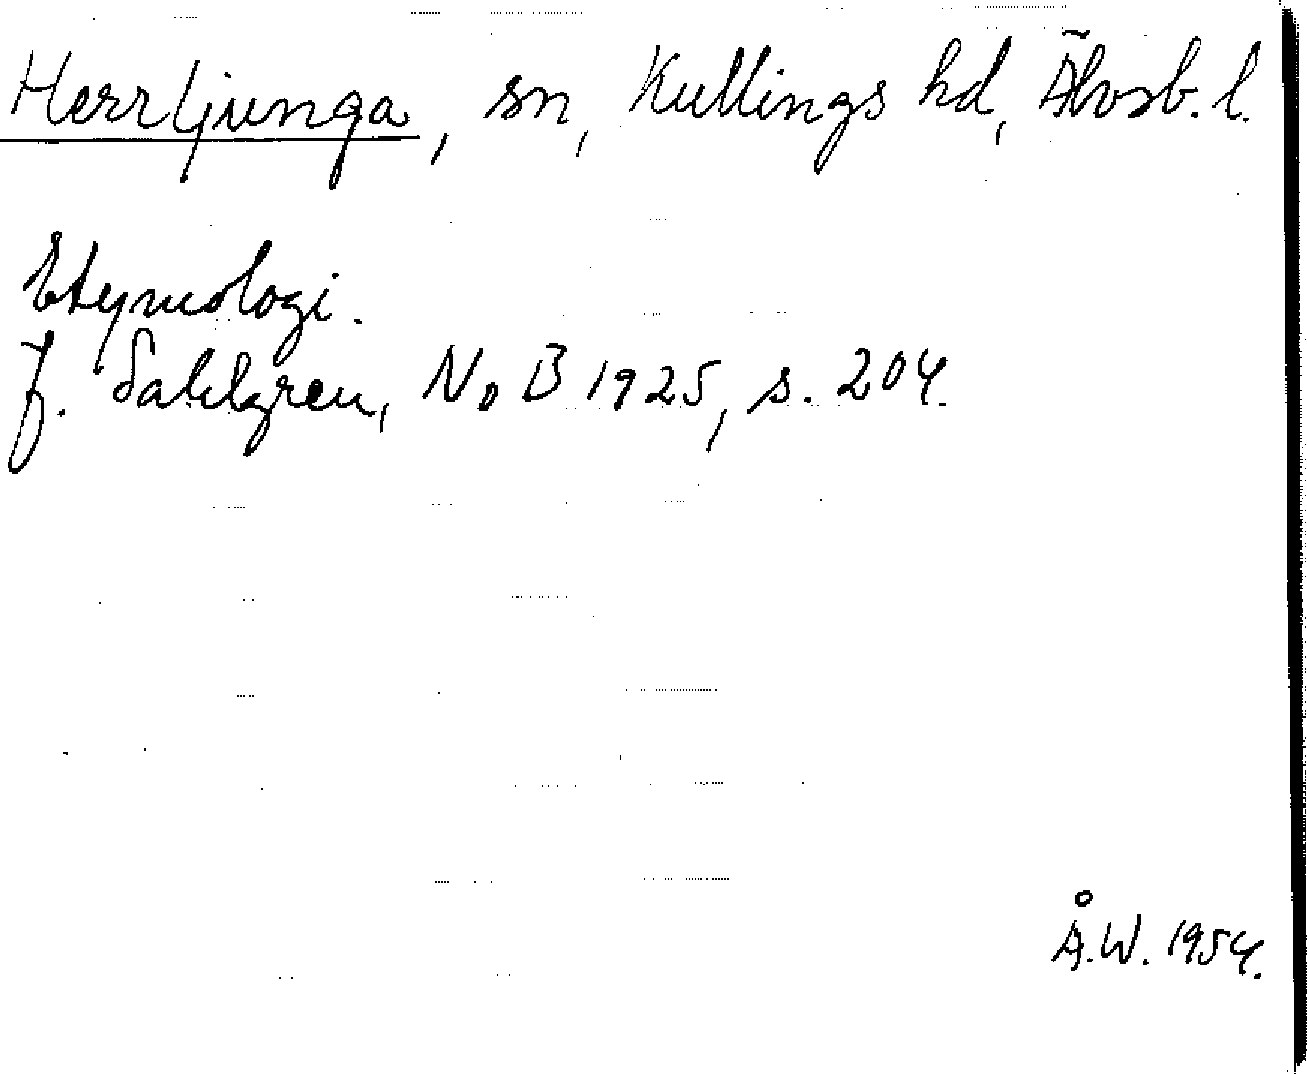 Herrljunga, sn, Kullings hd, Älvsb. l.
Etymologi.
J. Sahlgren, NoB 1925, s. 204.
Å.W. 1954.